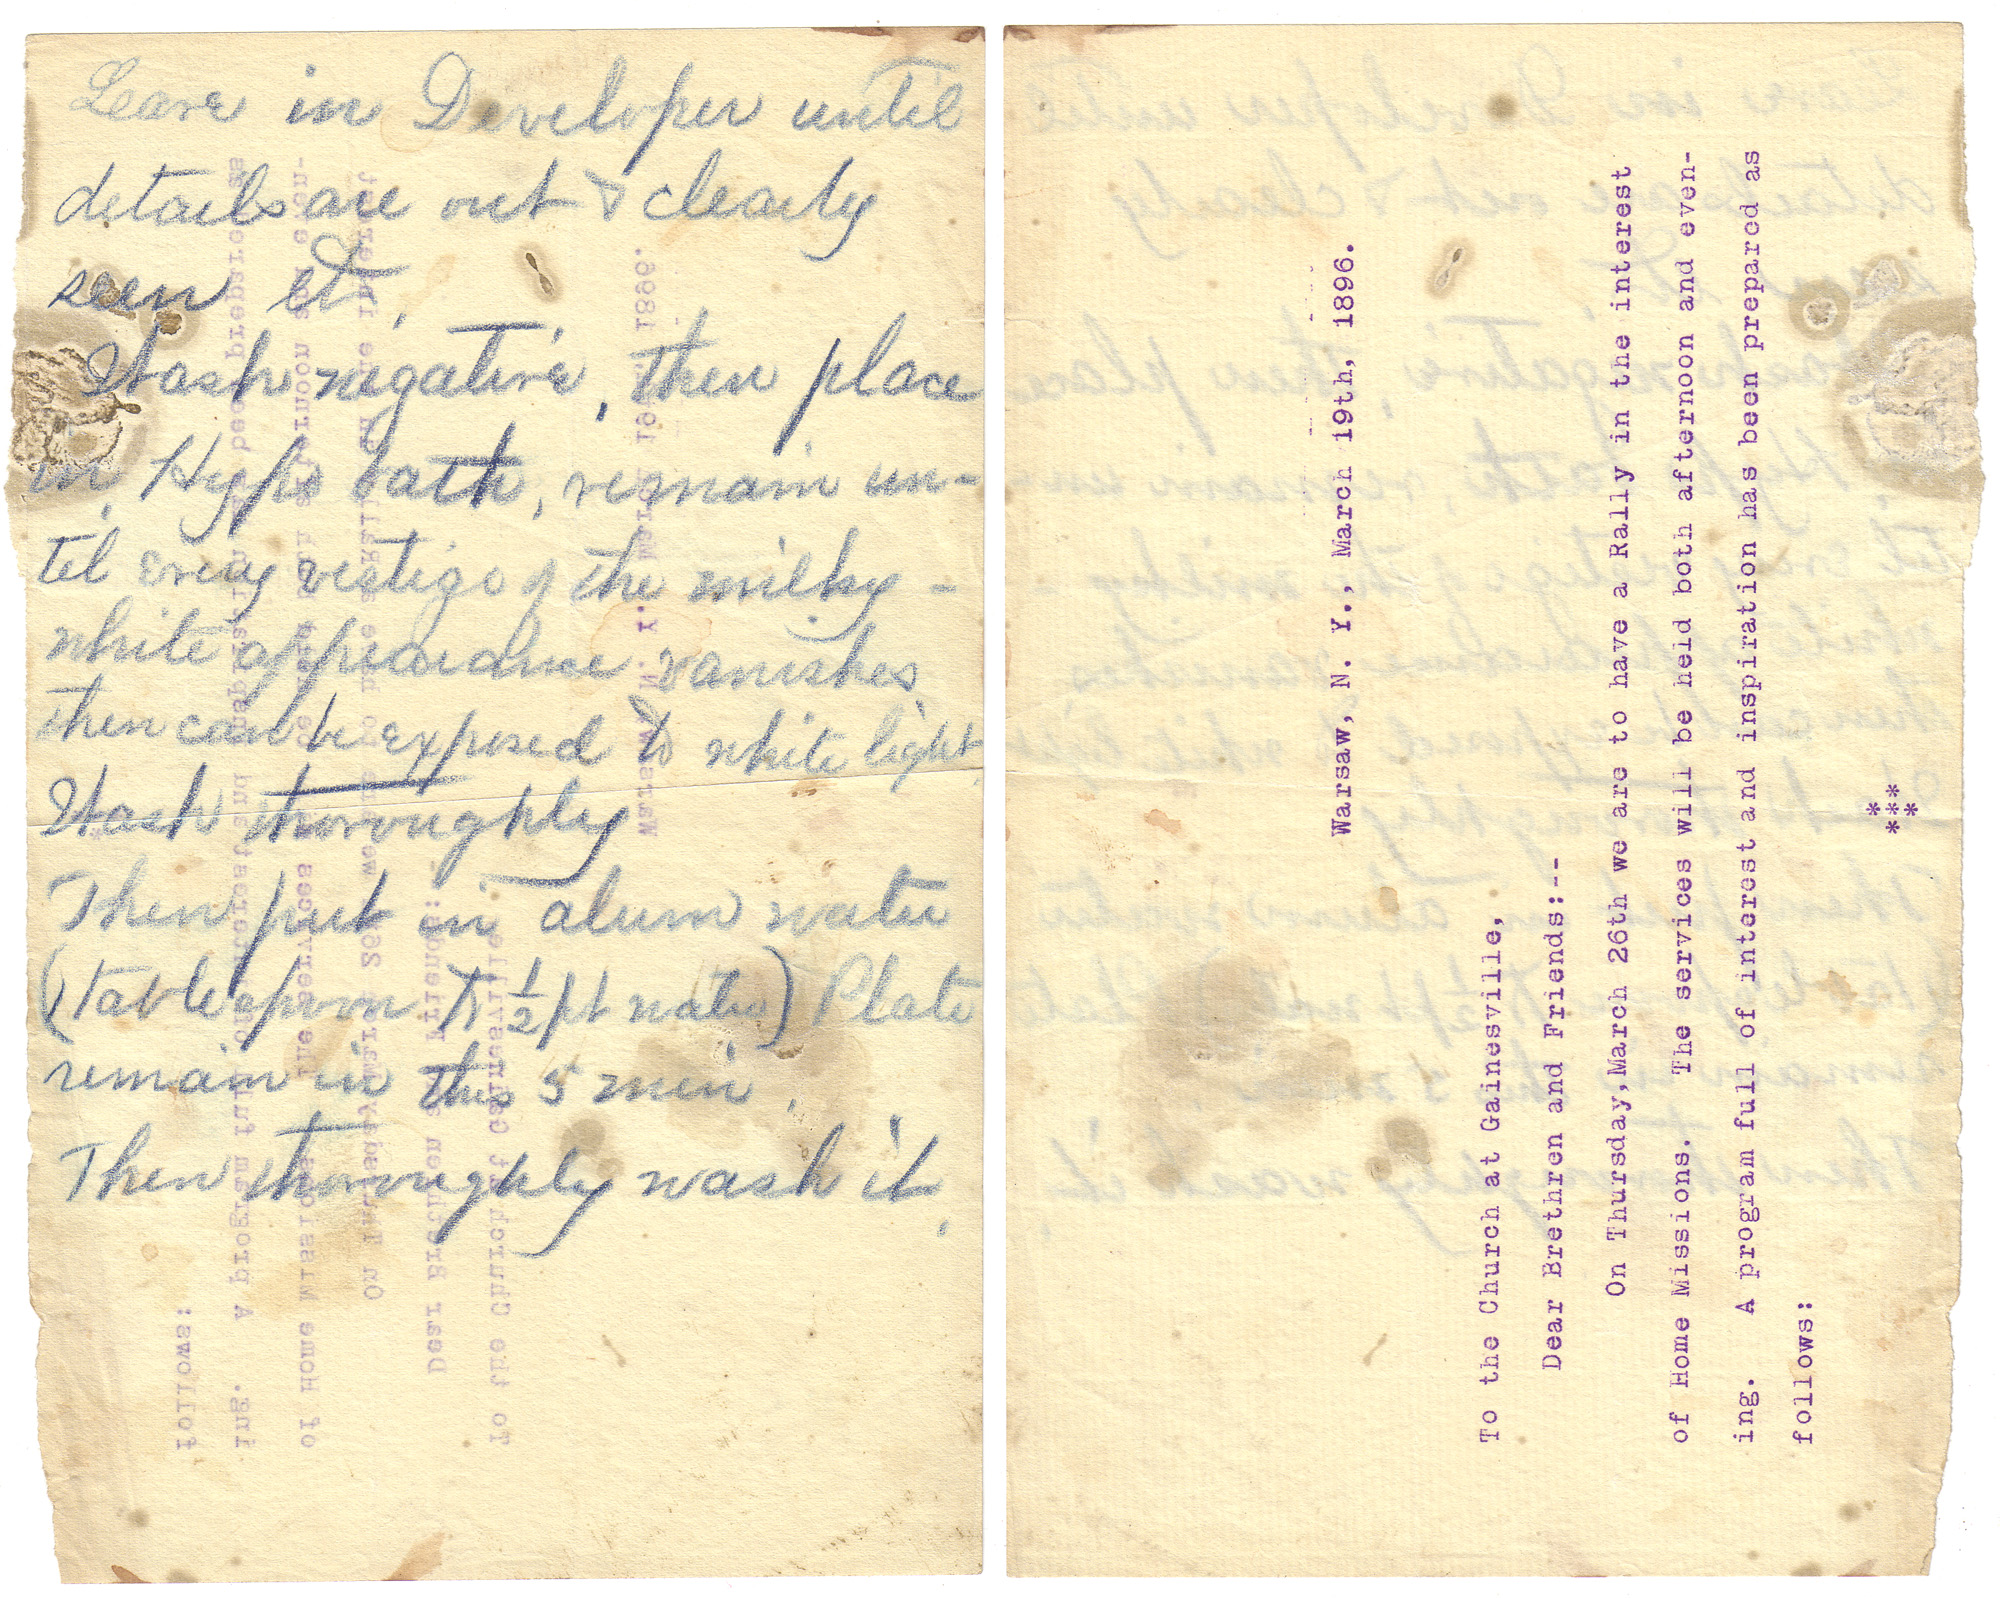 Leave in Developer until
details are out & clearly
seen etc.
Wash negative, then place
in Hypo bath, remain un-
til every vestige of the milky -
white appearance vanishes
then can be exposed to white light.
Wash thoroughly
Then put in alum water
(tablespoon to 1/2 pt water) Plate
remain in this 5 min.
Then thoroughly wash it.
Warsaw, N. Y., March 19th, 1896.
To the Church at Gainesville,
Dear Brethren and Friends:--
On Thursday,March 26th we are to have a Rally in the interest
of Home Missions. The services will be held both afternoon and even-
ing. A program full of interest and inspiration has been prepared as
follows:
*
***
*